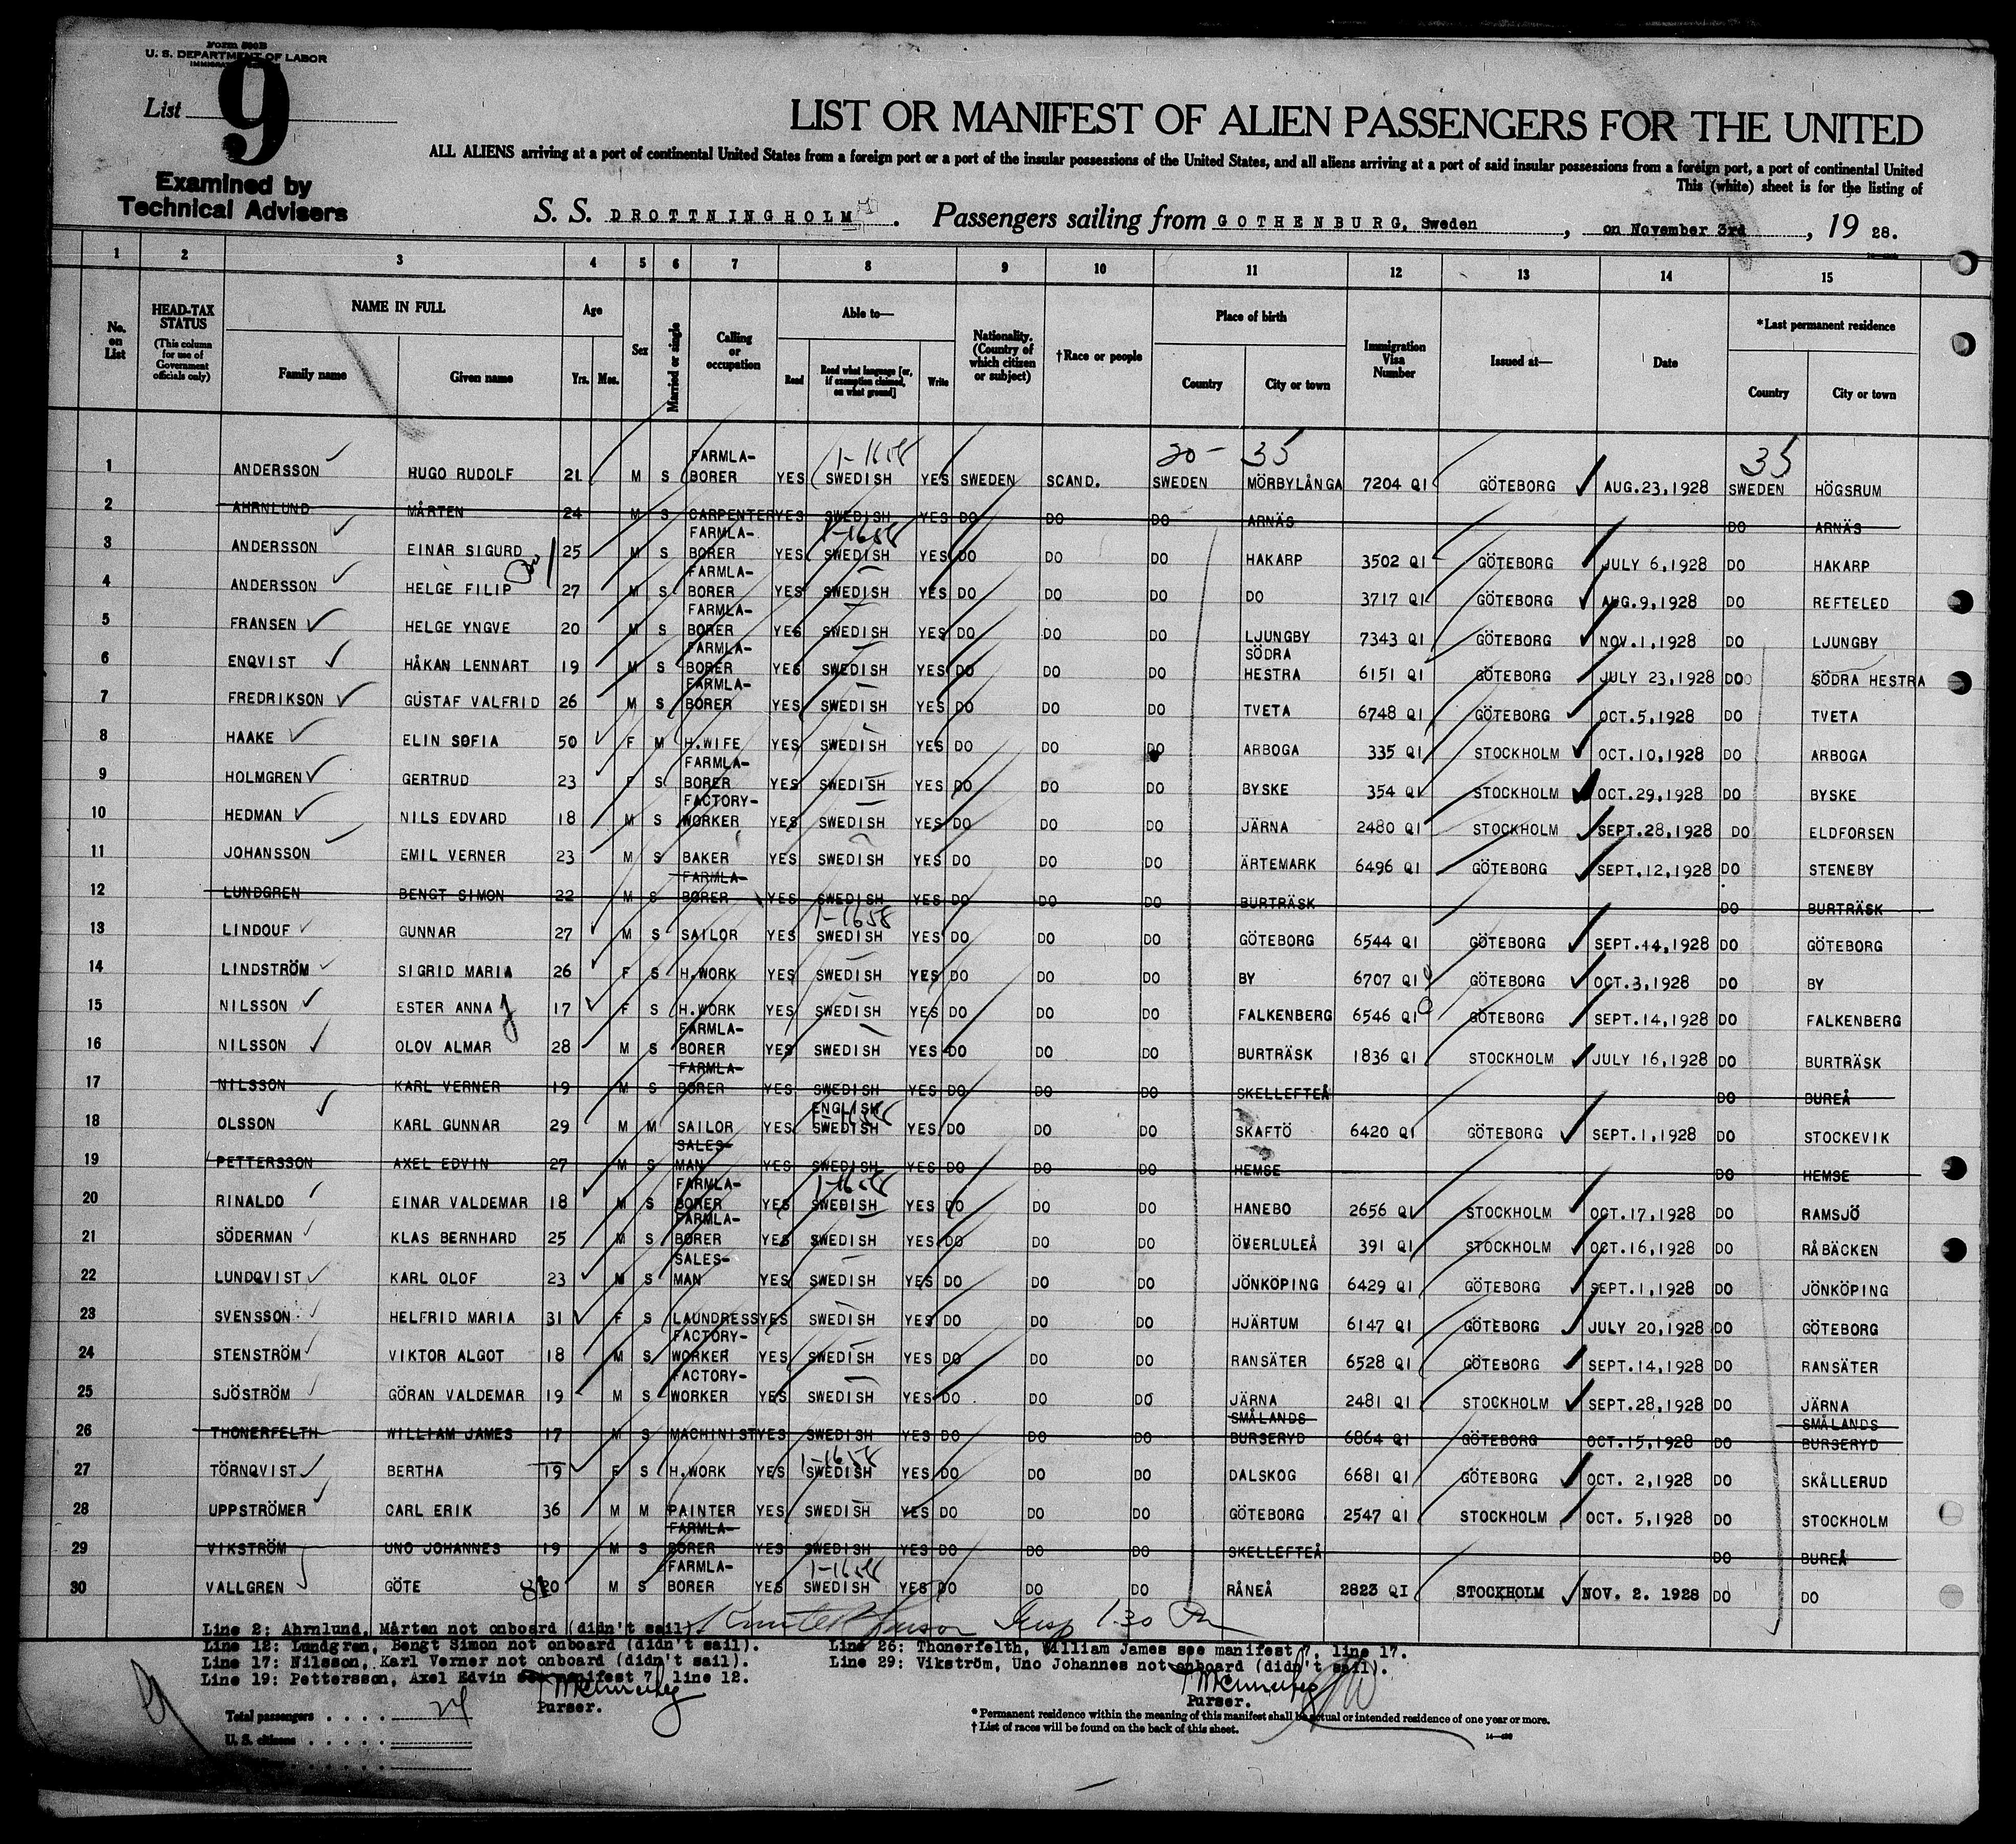 Form 500B
U. S. DEPARTMENT OF LABOR
List 9
LIST OR MANIFEST OF ALIEN PASSENGERS FOR THE UNITED
ALL ALIENS arriving at a port of continental United States from a foreign port or a port of the insular possessions of the United States, and all aliens arriving at a port of said insular possessions from a foreign port, a port of continental United
This (white) sheet is for the listing of
Examined by
Technical Advisers
S. S. DROTTNINGHOLM. Passengers sailing from GOTHENBURG, Sweden, on November 3rd, 19 28.
1 2 3 4 5 6 7 8 9 10 11 12 13 14 15
No. on List HEAD-TAX STATUS (This column for use of Government officials only) NAME IN FULL Family name Given name Age Yrs. Mos. Sex Married or single Calling or occupation Able to— Read Read what language [or, if exemption claimed, on what ground] Write Nationality. (Country of which citizen or subject) †Race or people Place of birth Country City or town Immigration Visa Number Issued at— Date *Last permanent residence Country City or town
1-1658 20- 35 35
1 ANDERSSON HUGO RUDOLF 21 M S FARMLA-BORER YES SWEDISH YES SWEDEN SCAND. SWEDEN MÖRBYLÅNGA 7204 QI GÖTEBORG AUG.23,1928 SWEDEN HÖGSRUM
2 AHRNLUND MÅRTEN 24 M S CARPENTER YES SWEDISH YES DO DO DO ARNÄS DO ARNÄS
1-1658
3 ANDERSSON EINAR SIGURD 25 M S FARMLA-BORER YES SWEDISH YES DO DO DO HAKARP 3502 QI GÖTEBORG JULY 6,1928 DO HAKARP
4 ANDERSSON HELGE FILIP 27 M S FARMLA-BORER YES SWEDISH YES DO DO DO DO 3717 QI GÖTEBORG AUG.9,1928 DO REFTELED
5 FRANSEN HELGE YNGVE 20 M S FARMLA-BORER YES SWEDISH YES DO DO DO LJUNGBY 7343 QI GÖTEBORG NOV.1,1928 DO LJUNGBY
6 ENQVIST HÅKAN LENNART 19 M S FARMLA-BORER YES SWEDISH YES DO DO DO SÖDRA HESTRA 6151 QI GÖTEBORG JULY 23,1928 DO SÖDRA HESTRA
7 FREDRIKSON GUSTAF VALFRID 26 M S FARMLA-BORER YES SWEDISH YES DO DO DO TVETA 6748 QI GÖTEBORG OCT.5,1928 DO TVETA
8 HAAKE ELIN SOFIA 50 F M H.WIFE YES SWEDISH YES DO DO DO ARBOGA 335 QI STOCKHOLM OCT.10,1928 DO ARBOGA
9 HOLMGREN GERTRUD 23 F S FARMLA-BORER YES SWEDISH YES DO DO DO BYSKE 354 QI STOCKHOLM OCT.29,1928 DO BYSKE
10 HEDMAN NILS EDVARD 18 M S FACTORY-WORKER YES SWEDISH YES DO DO DO JÄRNA 2480 QI STOCKHOLM SEPT.28,1928 DO ELDFORSEN
11 JOHANSSON EMIL VERNER 23 M S BAKER YES SWEDISH YES DO DO DO ÄRTEMARK 6496 QI GÖTEBORG SEPT.12,1928 DO STENEBY
12 LUNDGREN BENGT SIMON 22 M S FARMLA-BORER YES SWEDISH YES DO DO DO BURTRÄSK DO BURTRÄSK
1-1658
13 LINDOUF GUNNAR 27 M S SAILOR YES SWEDISH YES DO DO DO GÖTEBORG 6544 QI GÖTEBORG SEPT.14,1928 DO GÖTEBORG
14 LINDSTRÖM SIGRID MARIA 26 F S H.WORK YES SWEDISH YES DO DO DO BY 6707 QI GÖTEBORG OCT.3,1928 DO BY
15 NILSSON ESTER ANNA 17 F S H.WORK YES SWEDISH YES DO DO DO FALKENBERG 6546 QI GÖTEBORG SEPT.14,1928 DO FALKENBERG
16 NILSSON OLOV ALMAR 28 M S FARMLA-BORER YES SWEDISH YES DO DO DO BURTRÄSK 1836 QI STOCKHOLM JULY 16,1928 DO BURTRÄSK
17 NILSSON KARL VERNER 19 M S FARMLA-BORER YES SWEDISH YES DO DO DO SKELLEFTEÅ DO BUREÅ
1-1658
18 OLSSON KARL GUNNAR 29 M M SAILOR YES ENGLISH SWEDISH YES DO DO DO SKAFTÖ 6420 QI GÖTEBORG SEPT.1,1928 DO STOCKEVIK
19 PETTERSSON AXEL EDVIN 27 M S SALES-MAN YES SWEDISH YES DO DO DO HEMSE DO HEMSE
1-1658
20 RINALDO EINAR VALDEMAR 18 M S FARMLA-BORER YES SWEDISH YES DO DO DO HANEBO 2656 QI STOCKHOLM OCT.17,1928 DO RAMSJÖ
21 SÖDERMAN KLAS BERNHARD 25 M S FARMLA-BORER YES SWEDISH YES DO DO DO ÖVERLULEÅ 391 QI STOCKHOLM OCT.16,1928 DO RÅBÄCKEN
22 LUNDQVIST KARL OLOF 23 M S SALES-MAN YES SWEDISH YES DO DO DO JÖNKÖPING 6429 QI GÖTEBORG SEPT.1,1928 DO JÖNKÖPING
23 SVENSSON HELFRID MARIA 31 F S LAUNDRESS YES SWEDISH YES DO DO DO HJÄRTUM 6147 QI GÖTEBORG JULY 20,1928 DO GÖTEBORG
24 STENSTRÖM VIKTOR ALGOT 18 M S FACTORY-WORKER YES SWEDISH YES DO DO DO RANSÄTER 6528 QI GÖTEBORG SEPT.14,1928 DO RANSÄTER
25 SJÖSTRÖM GÖRAN VALDEMAR 19 M S FACTORY-WORKER YES SWEDISH YES DO DO DO JÄRNA 2481 QI STOCKHOLM SEPT.28,1928 DO JÄRNA
26 THONERFELTH WILLIAM JAMES 17 M S MACHINIST YES SWEDISH YES DO DO DO SMÅLANDS BURSERYD 6864 QI GÖTEBORG OCT.15,1928 DO SMÅLANDS BURSERYD
1-1658
27 TÖRNQVIST BERTHA 19 F S H.WORK YES SWEDISH YES DO DO DO DALSKOG 6681 QI GÖTEBORG OCT. 2,1928 DO SKÅLLERUD
28 UPPSTRÖMER CARL ERIK 36 M M PAINTER YES SWEDISH YES DO DO DO GÖTEBORG 2547 QI STOCKHOLM OCT. 5,1928 DO STOCKHOLM
29 VIKSTRÖM UNO JOHANNES 19 M S FARMLA-BORER YES SWEDISH YES DO DO DO SKELLEFTEÅ DO BUREÅ
1-1658
30 VALLGREN GÖTE 20 M S FARMLA-BORER YES SWEDISH YES DO DO DO RÅNEÅ 2823 QI STOCKHOLM NOV. 2. 1928 DO DO
Line 2: Ahrnlund, Mårten not onboard (didn't sail).
Line 12: Lundgren, Bengt Simon not onboard (didn't sail).
Line 17: Nilsson, Karl Verner not onboard (didn't sail).
Line 19: Pettersson, Axel Edvin see manifest 7, line 12.
Purser.
Insp 1.30
Line 26: Thonerfelth, William James see manifest 7, line 17.
Line 29: Vikström, Uno Johannes not onboard (didn't sail).
Purser.
Total passengers . . . . 24
U. S. citizens . . . . .
* Permanent residence within the meaning of this manifest shall be actual or intended residence of one year or more.
† List of races will be found on the back of this sheet.